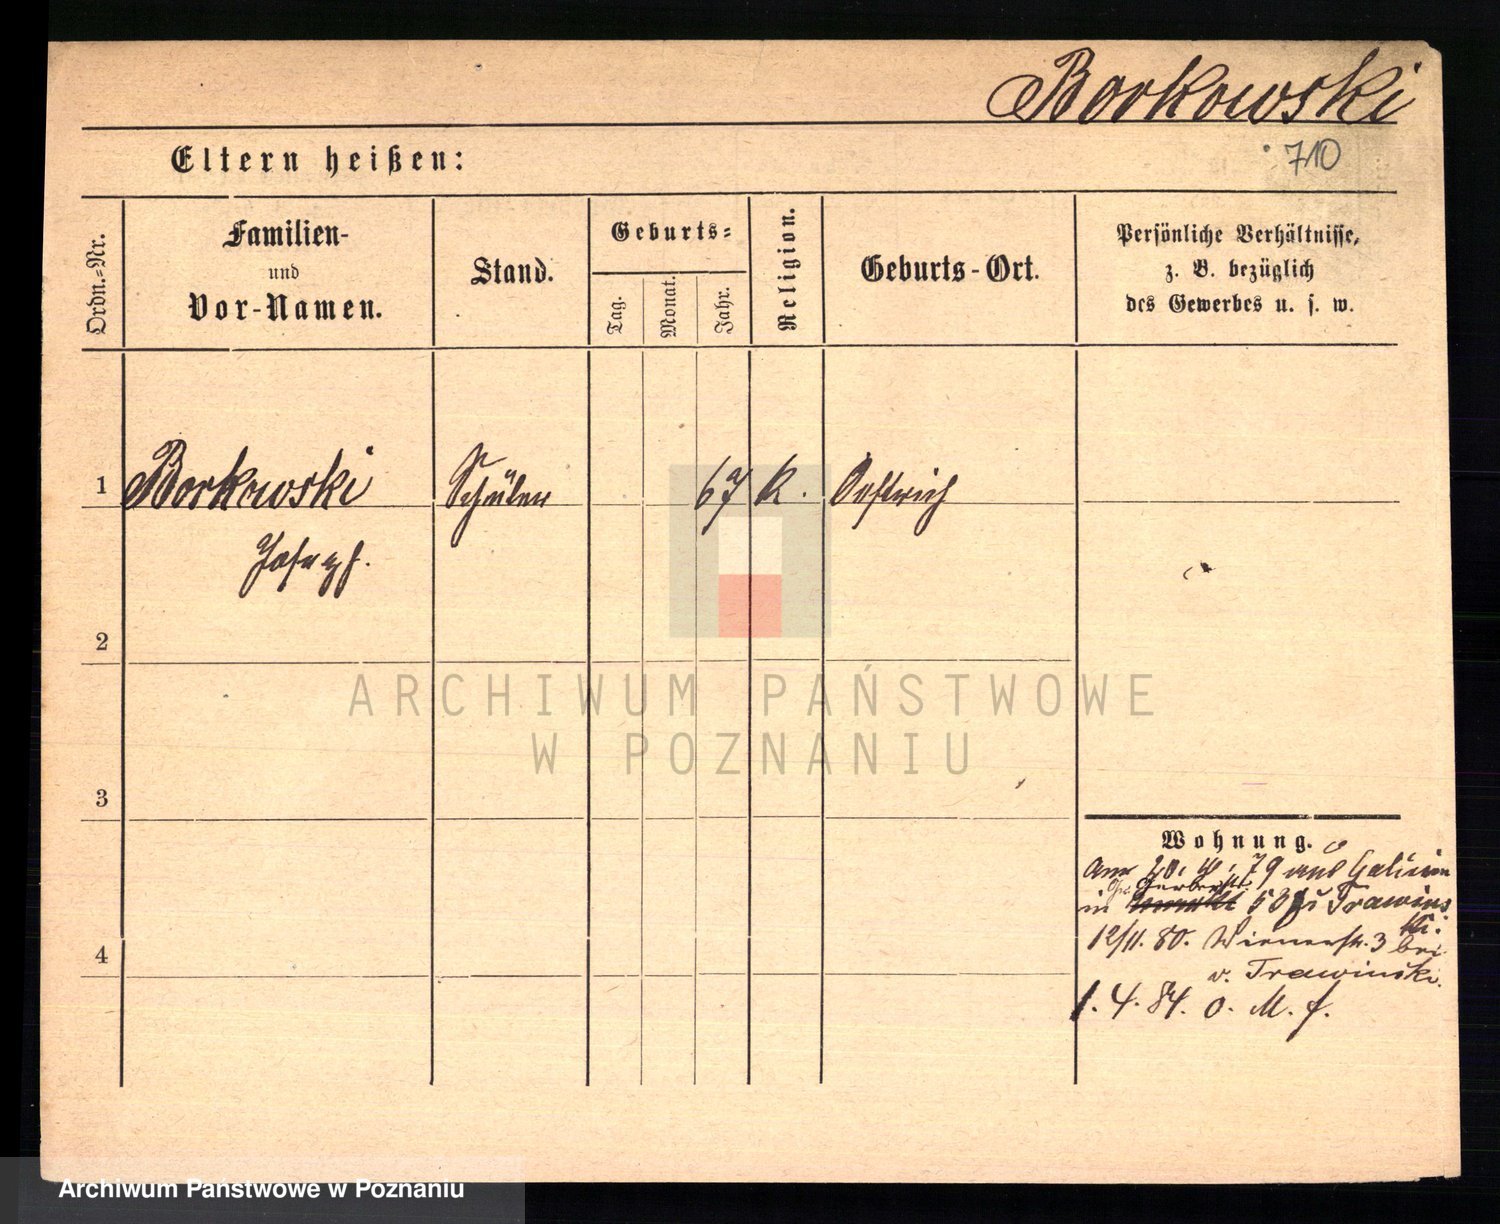 Borkowski
710
Eltern heißen:
Ordn.-Nr.
Familien-
und
Vor-Namen.
Stand.
Geburts-
Tag.
Monat.
Jahr.
Religion.
Geburts-Ort.
Persönliche Verhältnisse,
z. B. bezüglich
des Gewerbes u. s. w.
1 Borkowski Schüler 67 k. Oestrich
Joseph.
2
ARCHIWUM PAŃSTWOWE
W POZNANIU
3
Wohnung.
am 20. 4. 79 aus Galizien
Gr. Gerberstr.
in 53 zu Trawins
ki.
12/11. 80. Wienerstr. 3 bei
v. Trawinski.
4
1. 4. 84. o. M. f.
Archiwum Państwowe w Poznaniu